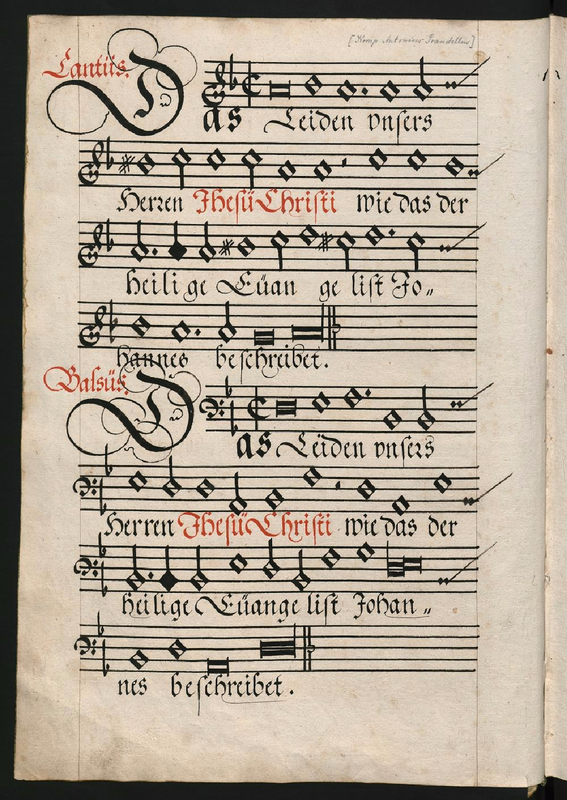 [Komp. Antonius Scandellus]
Cantus.
DAS Leiden vnsers
Herren Jhesu Christi wie das der
heilige Euan ge list Jo„
hannes beschreibet.
Bassus.
DAS Leiden vnsers
Herren Jhesu Christi wie das der
heilige Euange list Johan„
nes beschreibet.